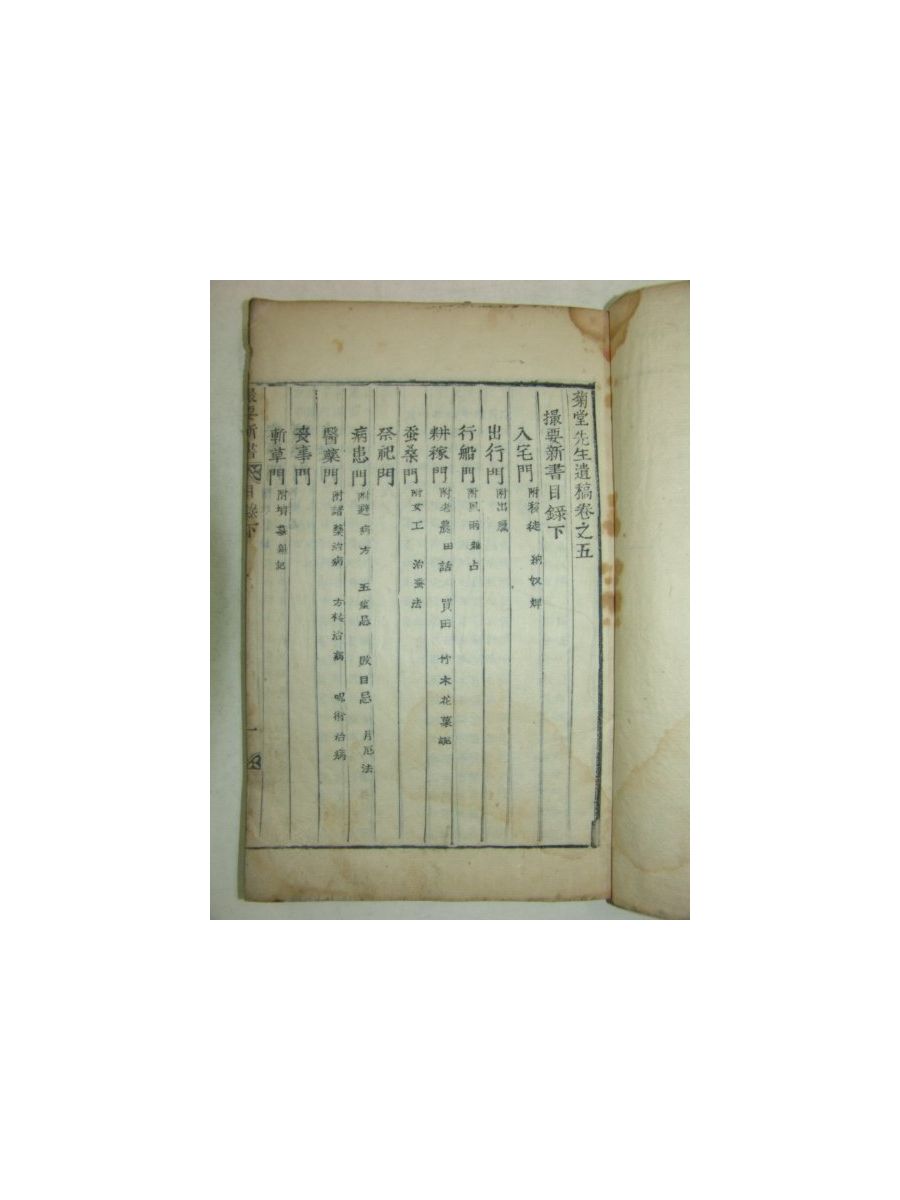 菊堂先生遺稿卷之五
撮要新書目錄下
入宅門 附移徒 納奴婢
出行門 附出獵
行船門 附風雨雜占
耕稼門 附老農田話 買田 竹木花菓
蚕桑門 附女工 治蚕法
祭祀門
病患門 附避病方 忌 忌 月厄法
醫藥門 附諸藥治病 方秘治病 呪術治病
喪事門
斬草門 附墳墓
撮要新書 目錄下 一